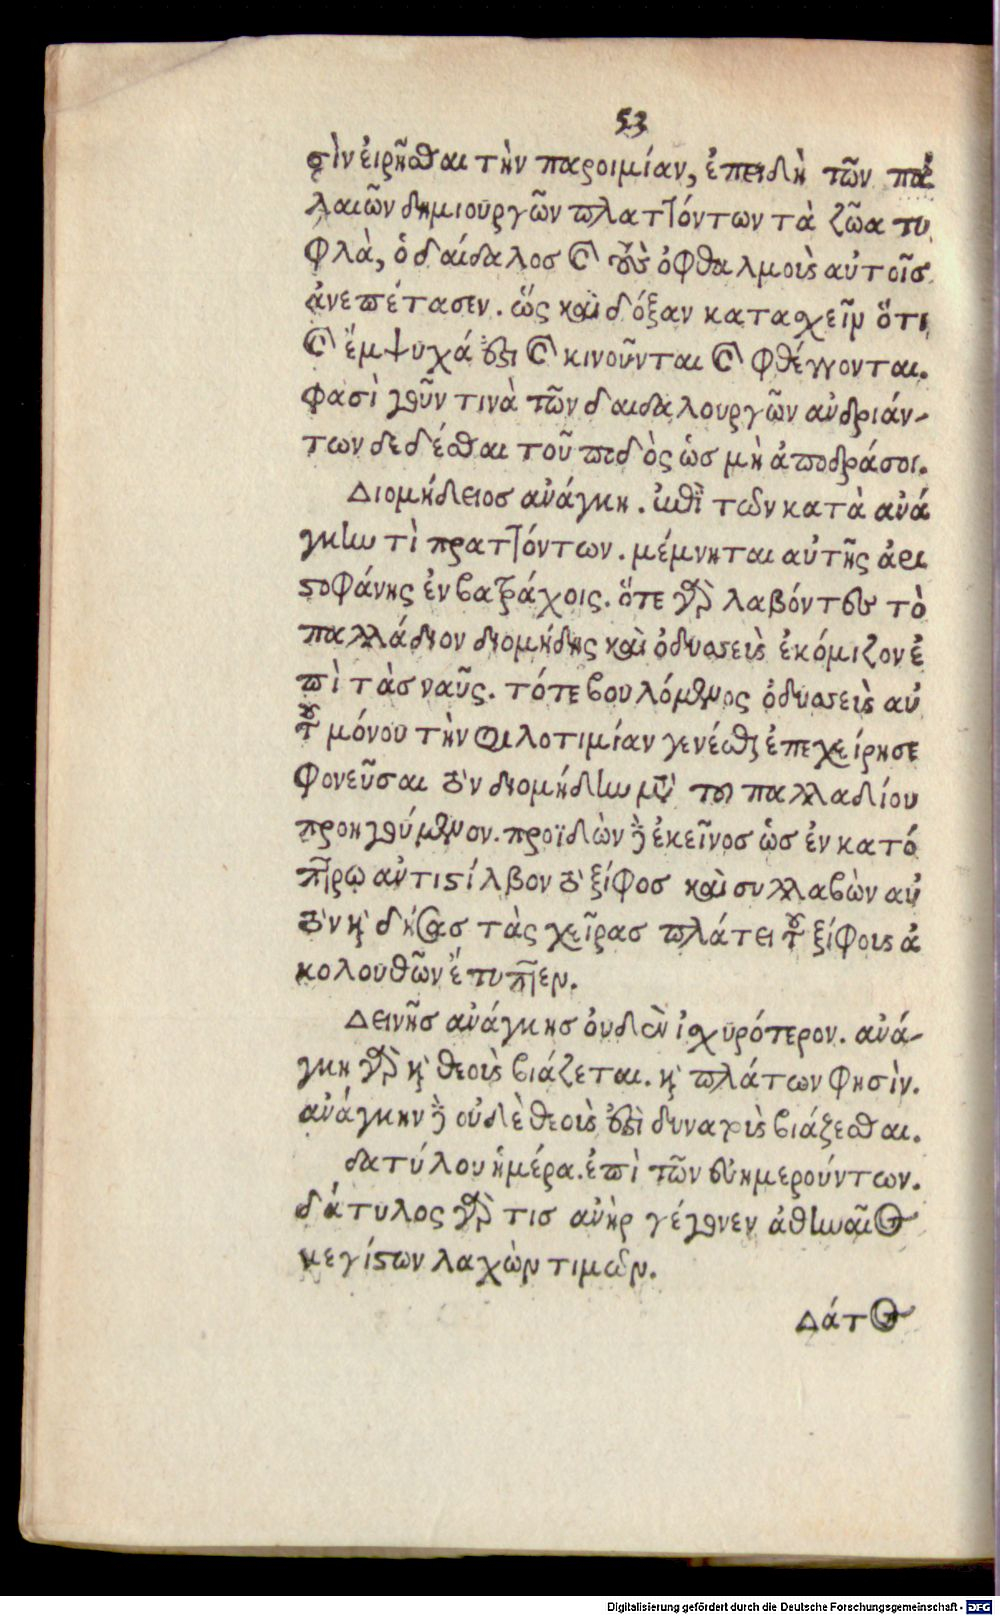 53
σὶν ἐιρῆσθαι τὴν παροιμίαν, ἐπειδὴ τῶν πα
λαιῶν δημιουργῶν πλαττόντων τὰ ζῶα τυ
φλὰ, ὁ δαίδαλοσ καὶ τοὺς ὀφθαλμοὺς αὐτοῖσ
ἀνεπέτασεν. ὥς καὶ δόξαν κατασχεῖν ὅτι
καὶ ἔμψυχά ἐστι καὶ κινοῦνται καὶ φθέγγονται.
φασὶ γοῦν τινὰ τῶν δαιδαλουργῶν ἀνδριάν-
των δεδέσθαι τοῦ ποδὸς ὡσ μὴ ἀποδράσοι.
Διομήδειοσ ἀνάγκη. ἐπὶ τῶν κατὰ ἀνά
γκην τὶ πραττόντων. μέμνηται αὐτῆς ἀρι
στοφάνης ἐν βατράχοις. ὅτε γὰρ λαβόντες τὸ
παλλάδιον διομήδης καὶ ὀδυσσεὺς ἐκόμιζον ἐ
πὶ τὰσ ναῦς. τότε βουλόμενος ὀδυσσεὺς αὐ
τοῦ μόνου τὴν φιλοτιμίαν γενέσθαι ἐπεχείρησε
φονεῦσαι τὸν διομήδην μετὰ τοῦ παλλαδίου
προηγούμενον. προϊδὼν δὲ ἐκεῖνοσ ὡσ ἐν κατό
πτρῳ ἀντιστίλβον τὸ ξίφοσ καὶ συλλαβὼν αὐ
τὸν καὶ δήσασ τὰς χεῖρασ πλάτει τοῦ ξίφους ἀ
κολουθῶν ἔτυπτεν.
Δεινῆσ ἀνάγκησ ὀυδὲν ἰσχυρότερον. ἀνά-
γκη γὰρ καὶ θεοὺς βιάζεται. καὶ πλάτων φησὶν.
ἀνάγκην δὲ οὐδὲ θεοὺς ἐστὶ δυνατοὺς βιάζεσθαι.
δατύλου ἡμέρα. ἐπὶ τῶν εὐημερούντων.
δάτυλος γὰρ τισ ἀνὴρ γέγονεν ἀθηναῖος
μεγίστων λαχὼν τιμῶν.
Δάτος
Digitalisierung gefördert durch die Deutsche Forschungsgemeinschaft - DFG